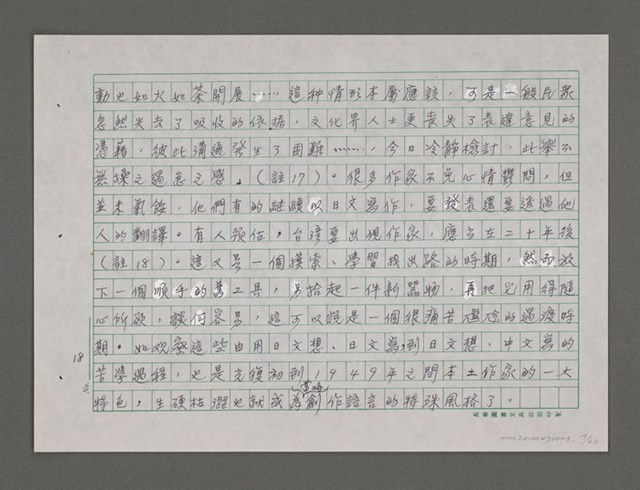 動也如火如荼開展……這种情形本屬應該，可是一般民眾
忽然失去了吸收的依據，文化界人士更喪失了表達意見的
憑藉，彼此溝通發生了困難……，今日冷靜檢討，此舉不
無操之過急之感。」（註17）。很多作家不免心情鬱悶，但
並未氣餒，他們有的継續以日文寫作，要發表還要透過他
人的翻譯。有人預估，台湾要出現作家，應当在二十年後
（註18）。這又是一個摸索、學習找出路的時期，然而放
下一個順手的舊工具，另拾起一件新器物，再把它用得隨
心所欲，談何容易，這可以說是一個很痛苦尷尬的過渡時
期。如观察這些由用日文想、日文寫到日文想、中文寫的
苦學過程，也是光復初到1949年之間本土作家的一大
特色，生硬枯澀也就成為當時創作語言的特殊風格了。
18
No.
長春圖書文具公司印製